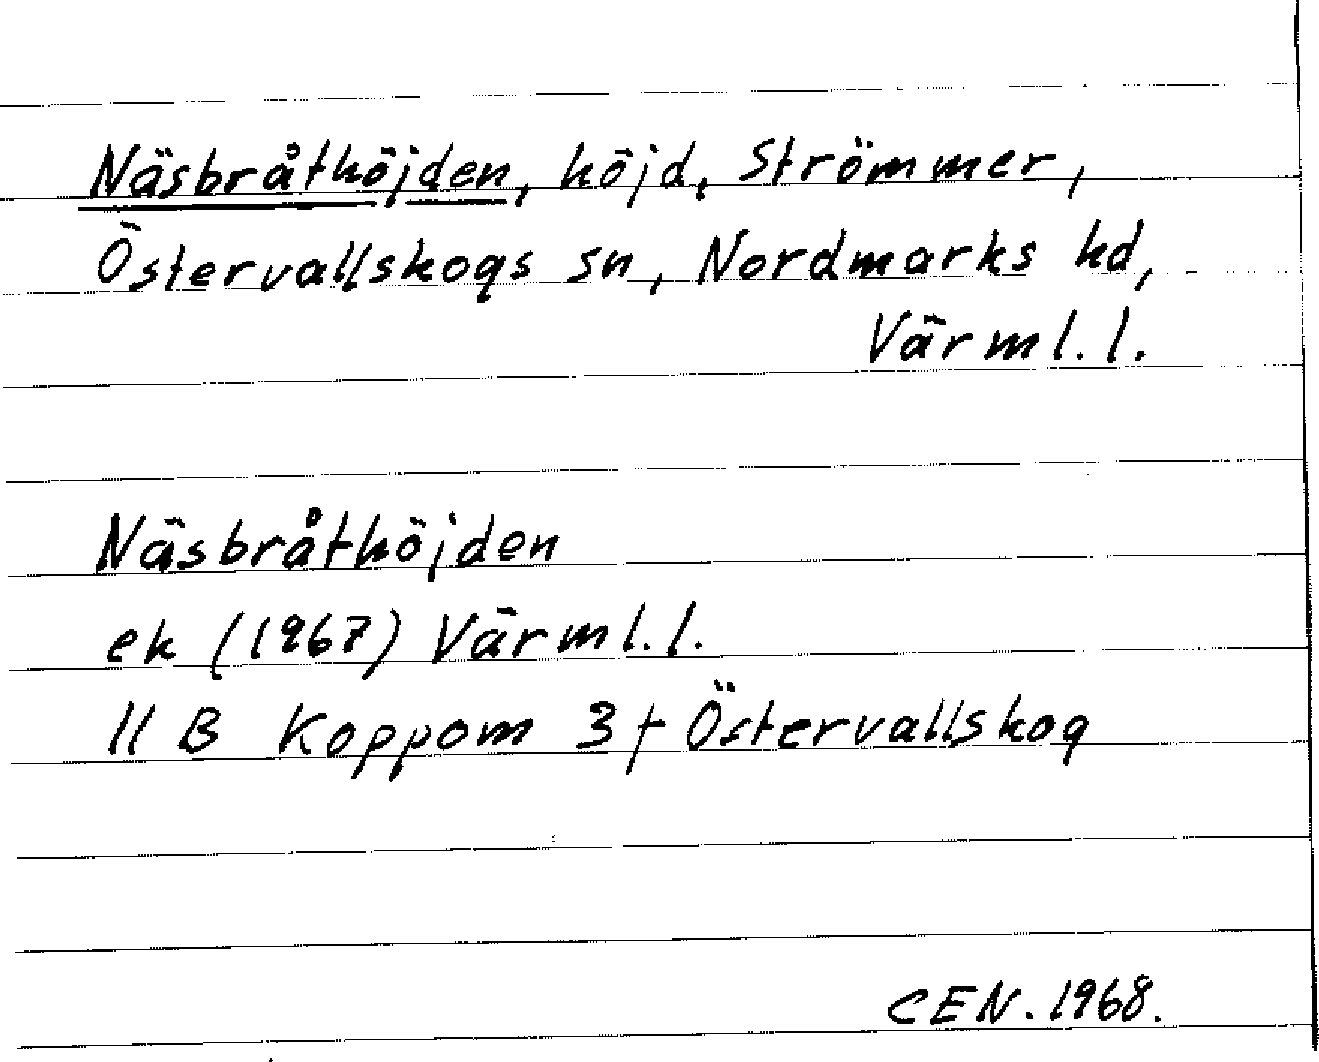 Näsbråthöjden, höjd, Strömmer,
Östervallskogs sn, Nordmarks hd,
Värml. l.
Näsbråthöjden
ek (1967) Värml. l.
11 B Koppom 3 f Östervallskog
CEN. 1968.